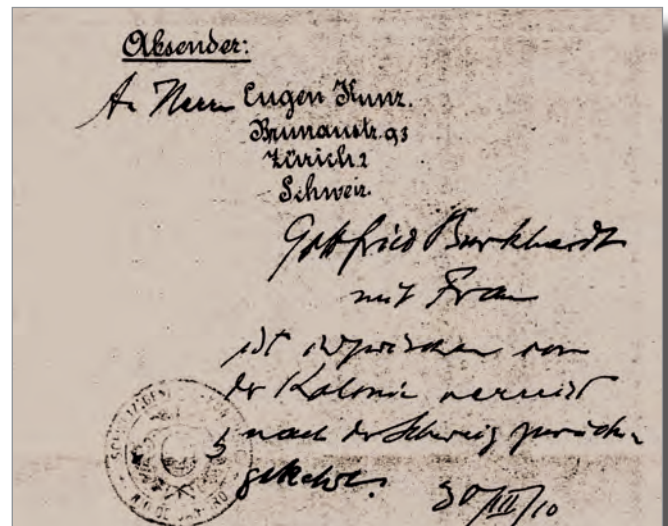 Absender:
An Herrn Eugen Kunz.
Brunaustr. 93
Zürich 2
Schweiz.
Gottfried Burkhardt
mit Frau
ist inzwischen von
der Kolonie verreist
& nach der Schweiz zurück-
gekehrt.
30/III/10
RIO DE JANEIRO